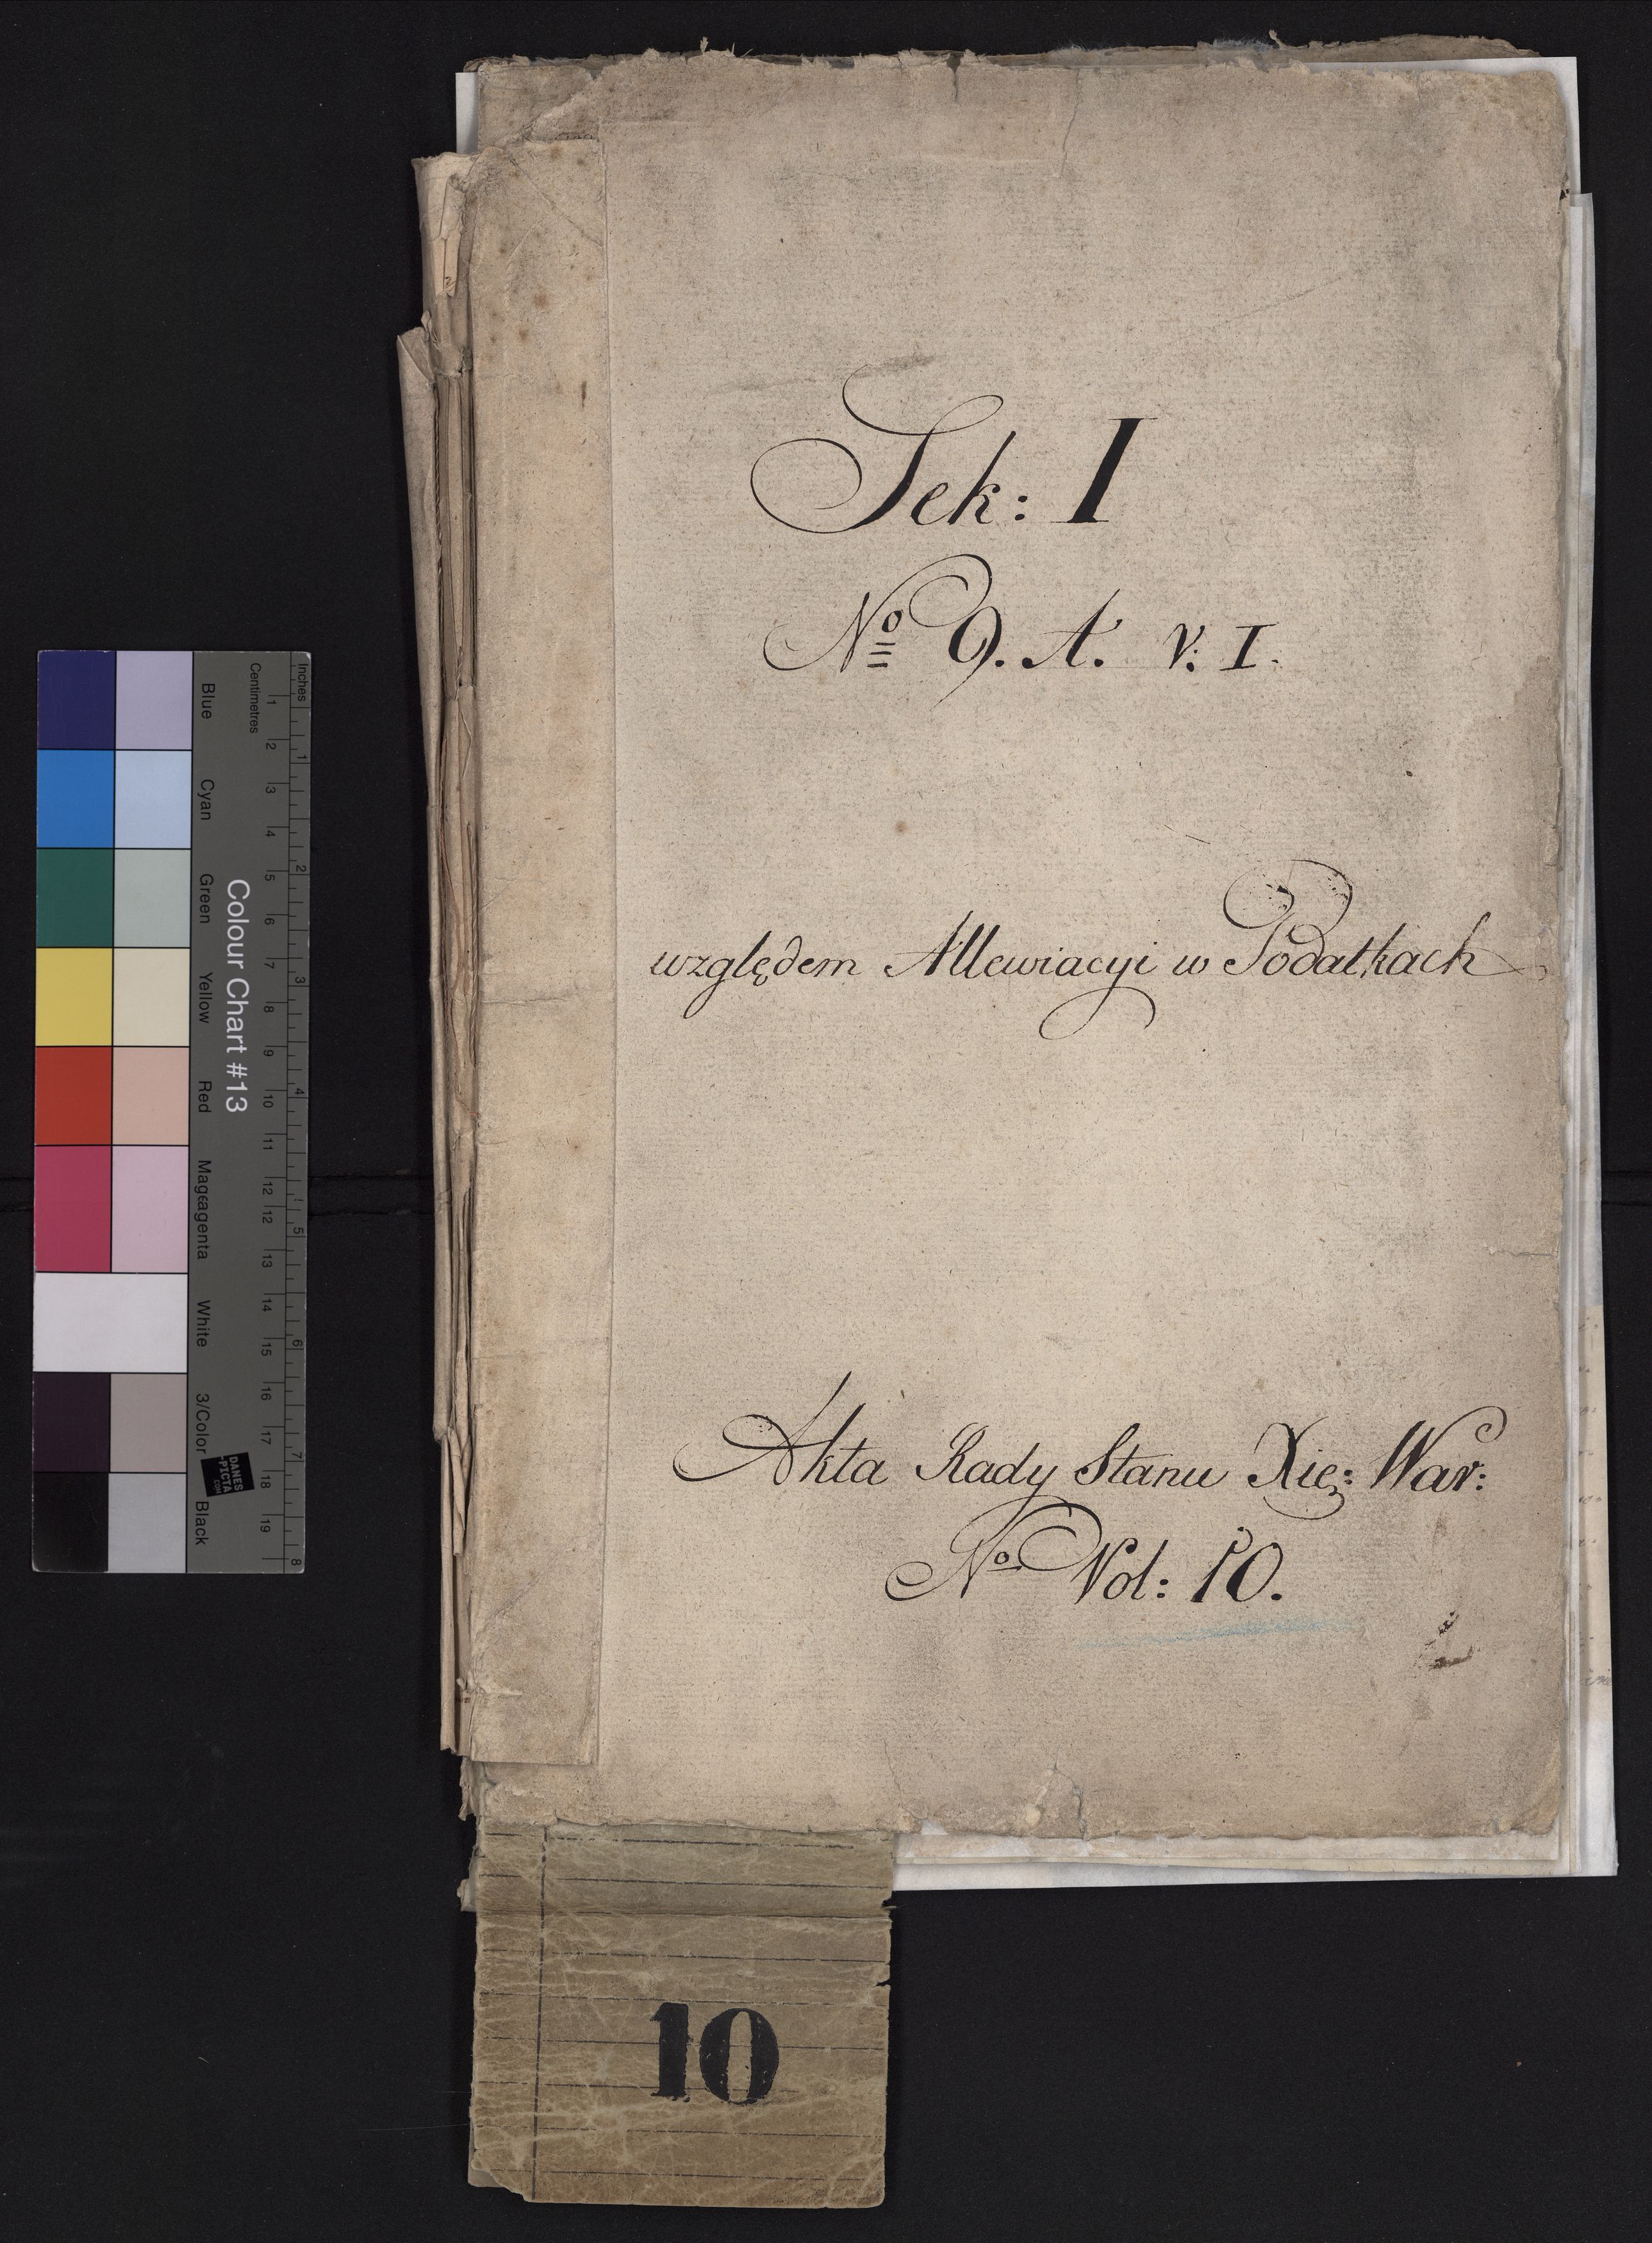 Sek: I
Nº 9. A. V. I.
względem Allewiacyi w Podatkach
Akta Rady Stanu Xię: War:
Nº Vol: 10.
10
Colour Chart #13
Blue
Cyan
Green
Yellow
Red
Mageagenta
White
3/Color
Black
Centimetres
1 2 3 4 5 6 7 8 9 10 11 12 12 13 14 15 16 17 18 19
Inches
1 2 3 4 5 6 7 8
DANES
-PICTA
.COM